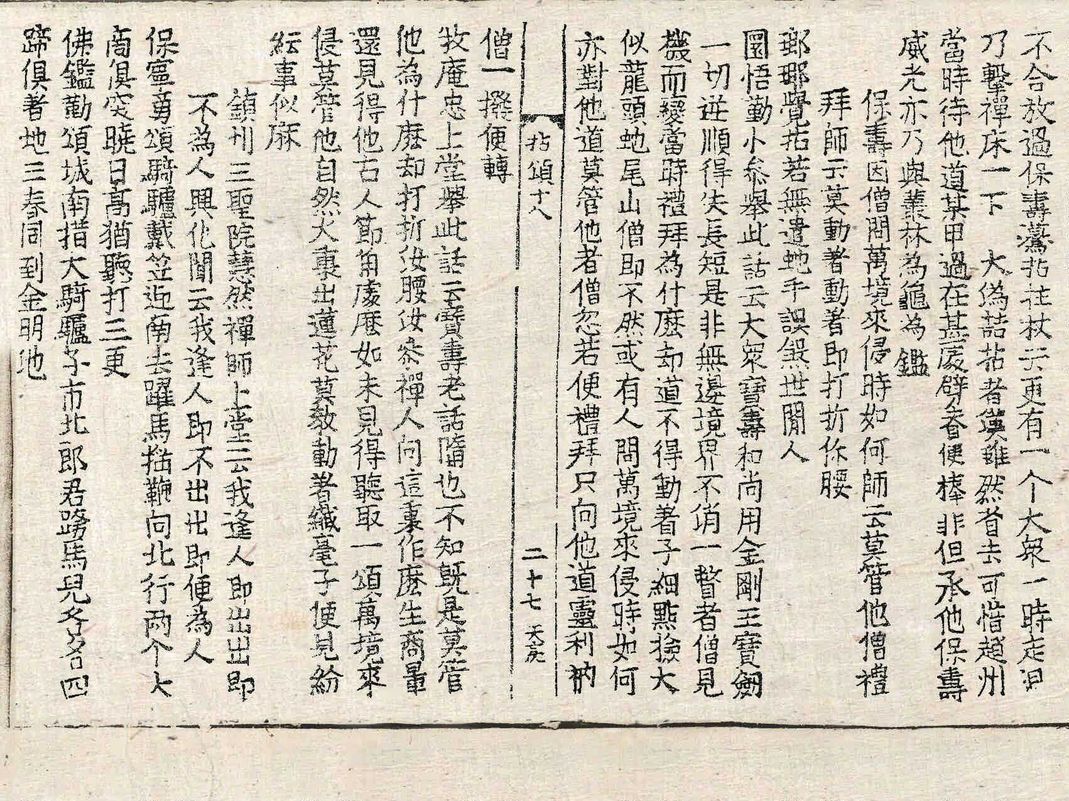 不合放過保壽驀拈拄杖云更有一个大衆一時走退
乃擊禪床一下 大偽喆拈者漢雖然省去可惜趙州
當時待他道某甲過在甚處劈脊便棒非但承他保壽
威光亦乃與叢林為龜為鑑
保壽因僧問萬境來侵時如何師云莫管他僧禮
拜師云莫動著動著即打折你腰
瑯瑘覺拈若無遣虵手誤殺世閒人
圜悟勤小叅舉此話云大衆寶壽和尚用金剛王寶劔
一切逆順得失長短是非無邊境界不消一瞥者僧見
機而變當時禮拜為什麽却道不得動着子細㸃撿大
似龍頭虵尾山僧即不然或有人問萬境來侵時如何
亦對他道莫管他者僧忽若便禮拜只向他道靈利衲
拈頌十八
二十七
僧一撥便轉
牧庵忠上堂舉此話云寶壽老話墮也不知旣是莫管
他為什麽却打折汝腰汝叅禪人向這裏作麽生商量
還見得他古人節角處麽如未見得聽取一頌萬境來
侵莫管他自然火裏出蓮花莫敎動着纎毫子便見紛
紜事似麻
鎮州三聖院慧然禪師上堂云我逢人即出出即
不為人興化聞云我逢人即不出出即便為人
保寧勇頌騎驢戴笠迎南去躍馬搖鞭向北行兩个大
商俱突曉日高猶聽打三更
佛鑑懃頌城南措大騎驢子市北郎君跨馬兒各各四
蹄俱著地三春同到金明池